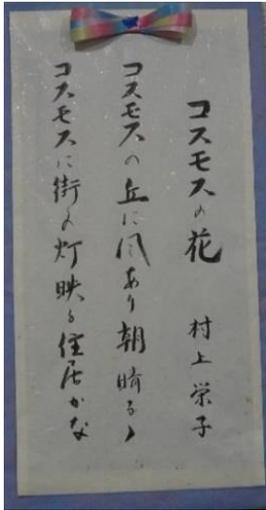 コスモスの花
村上栄子
コスモスの丘に風あり朝晴るゝ
コスモスに街の灯映る住居かな